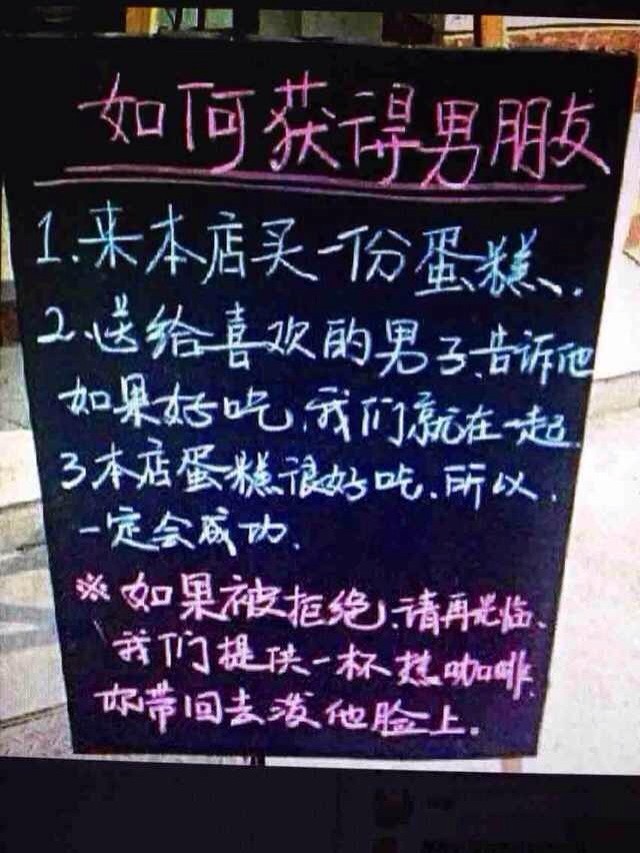 如何获得男朋友
1.来本店买一份蛋糕.
2.送给喜欢的男子、告诉他
如果好吃、我们就在一起.
3本店蛋糕很好吃、所以、
一定会成功.
※如果被拒绝、请再光临、
我们提供一杯热咖啡
你带回去泼他脸上。